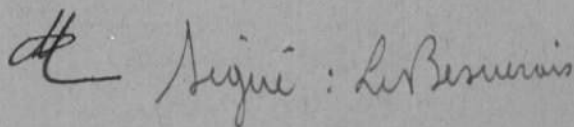 Signé : LeBesnerais